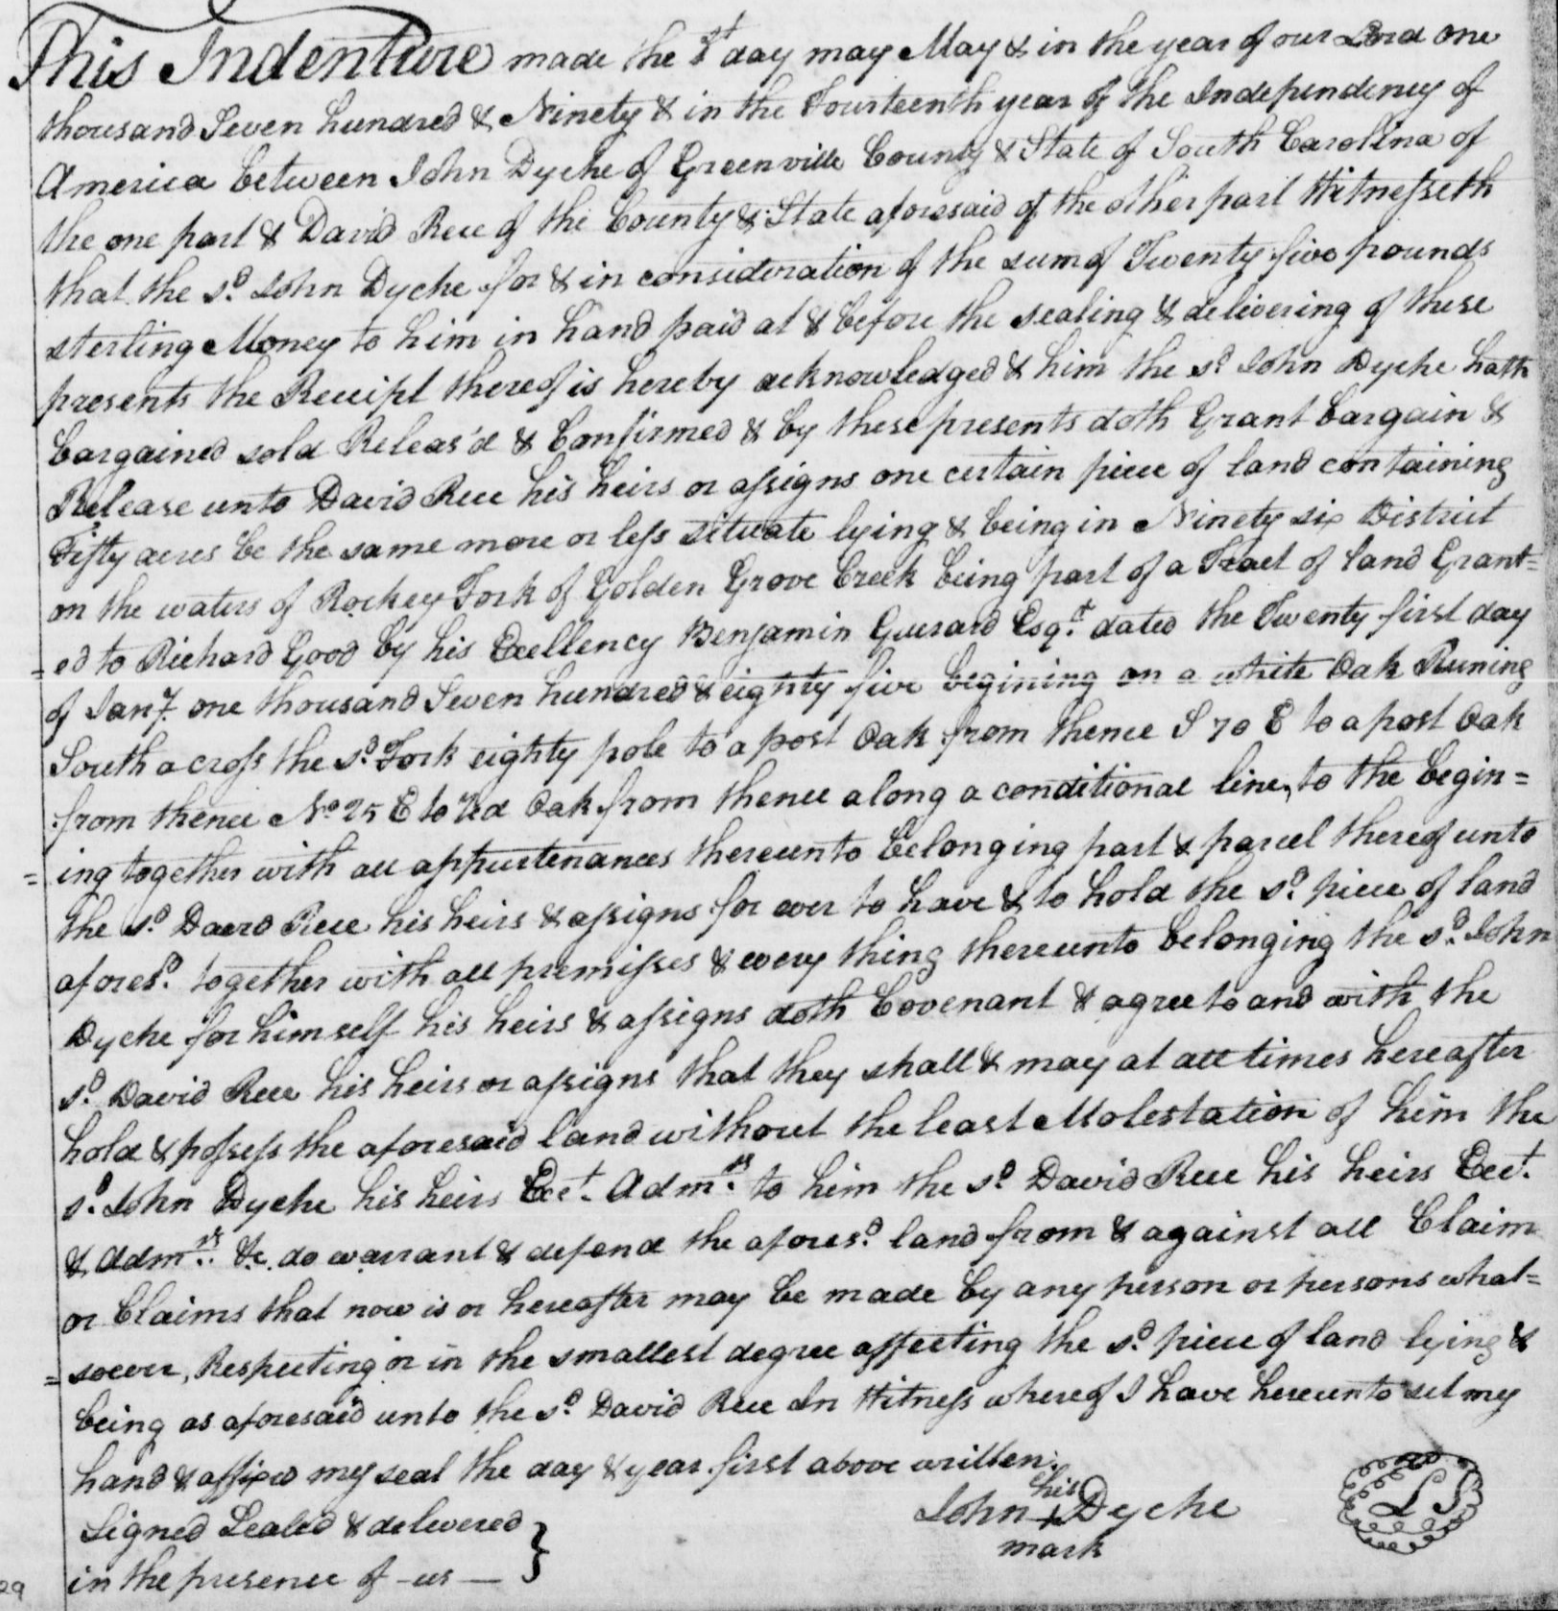 This Indenture made the 8t day may May & in the year of our Lord one
thousand Seven hundred & Ninety & in the Fourteenth year of the Independency of
America between John Dyche of Greenville County & State of South Carolina of
the one part & David Rece of the County & State aforesaid of the other part Witnesseth
that the sd. John Dyche for & in consideration of the sum of Twenty five pounds
sterling Money to him in hand paid at & before the sealing & delivering of these
presents the Receipt thereof is hereby acknowledged & him the sd. John Dyche hath
bargained sold Releas'd & Confirmed & by these presents doth Grant bargain &
Release unto David Rece his heirs or assigns one certain piece of land containing
Fifty acres be the same more or less situate lying & being in Ninety six District
on the waters of Rockey Fork of Golden Grove Creek being part of a Tract of land Grant=
=ed to Richard Good by his Excellency Benjamin Guerard Esqr. dated the Twenty first day
of Jany. one thousand Seven hundred & eighty five begining on a white Oak Runing
South across the sd. Fork eighty pole to a post Oak from thence S 70 E to a post Oak
from thence No 25 E to Red Oak from thence along a conditional line, to the begin=
=ing together with all appurtenances thereunto belonging part & parcel thereof unto
the sd. David Rece his heirs & assigns for ever to have & to hold the sd. piece of land
aforesd. together with all premisses & every thing thereunto belonging the sd. John
Dyche for himself his heirs & assigns doth Covenant & agree to and with the
sd. David Rece his heirs or assigns that they shall & may at all times hereafter
hold & possess the aforesaid land without the least Molestation of him the
sd. John Dyche his heirs Exet. Admrs. to him the sd. David Rece his heirs Exet.
& Admrs. &c. do warrant & defend the aforesd. land from & against all Claim
or Claims that now is or hereafter may be made by any person or persons what=
=soever, Respecting or in the smallest degree affecting the sd. piece of land lying &
being as aforesaid unto the sd. David Rece In Witness whereof I have hereunto set my
hand & affixed my seal the day & year first above written.
Signed Sealed & delivered
in the presence of us
his
John + Dyche
mark
LS
29